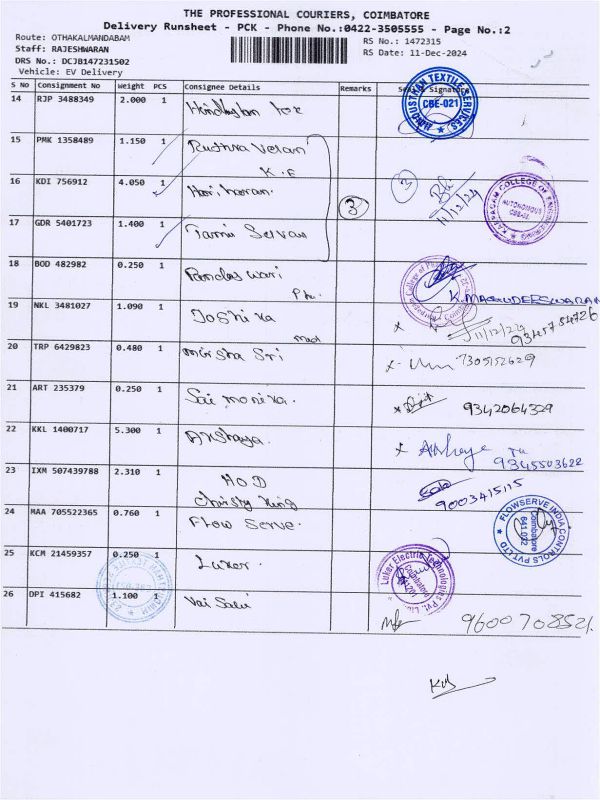 THE PROFESSIONAL COURIERS, COIMBATORE
Delivery Runsheet - PCK - Phone No.:0422-3505555 - Page No.:2
Route: OTHAKALMANDABAM RS No.: 1472315
Staff: RAJESHWARAN RS Date: 11-Dec-2024
DRS No.: DCJB147231502
Vehicle: EV Delivery
S No Consignment No Weight PCS Consignee Details Remarks Signature
14 RJP 3488349 2.000 1 Hindustan Tex
HINDUSTHAN TEXTILE SERVICES CBE-021
15 PMK 1358489 1.150 1 Ruthra Velan
K.E
16 KDI 756912 4.050 1 Hari haran. 3 3 11/12/24
KARPAGAM COLLEGE OF ENGINEERING AUTONOMOUS
17 GDR 5401723 1.400 1 Tamil Selvan
18 BOD 482982 0.250 1 Pandeswari
19 NKL 3481027 1.090 1 Joshika x 11/12/24 9345754726
20 TRP 6429823 0.480 1 x 7305152629
21 ART 235379 0.250 1 Sai monika. x 9342064329
22 KKL 1400717 5.300 1 Akshaya. x 9345503622
23 IXM 507439788 2.310 1 HOD
Christy King 9003415115
24 MAA 705522365 0.760 1 Flow Serve.
FLOWSERVE INDIA CONTROLS PVT LTD Coimbatore
25 KCM 21459357 0.250 1 Luker.
Luker Electric Technologies Pvt. Ltd. Coimbatore
26 DPI 415682 1.100 1 Vai Sali 9600708521